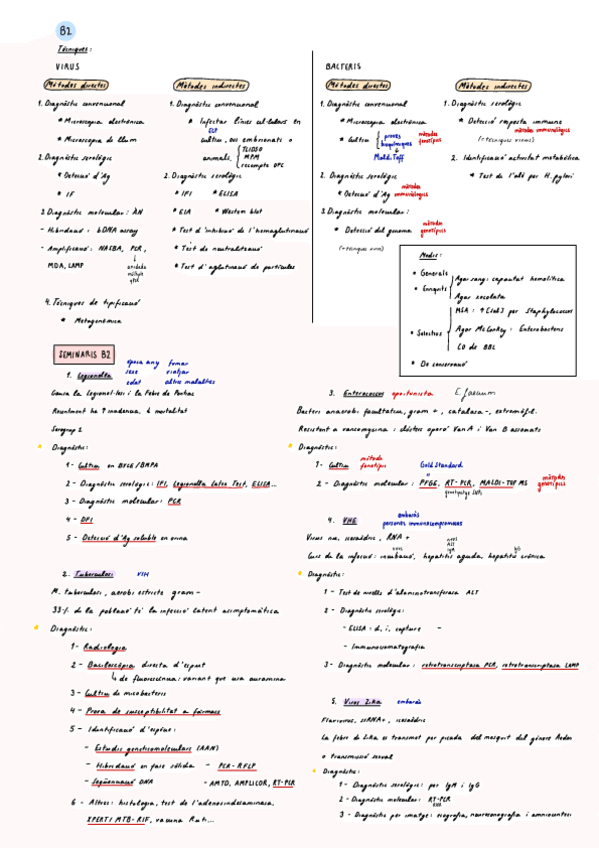 B2
Tècniques:
VIRUS
Mètodes directes
Mètodes indirectes
1. Diagnòstic convencional
* Microscopia electrònica
* Microscopia de llum
2. Diagnòstic serològic
* Detecció d'Ag
* IF
3. Diagnòstic molecular: AN
- Hibridació: bDNA assay
- Amplificació: NASBA, PCR,
MDA, LAMP
4. Tècniques de tipificació
* Metagenòmica
1. Diagnòstic convencional
* Infectar línies cel·lulars en
cultiu, ous embrionats o
animals.
TCID50
MPM
recompte UFC
2. Diagnòstic serològic
* IFI * ELISA
* EIA * Western blot
* Test d'inhibició de l'hemaglutinació
* Test de neutralització
* Test d'aglutinació de partícules
BACTERIS
Mètodes directes
Mètodes indirectes
1. Diagnòstic convencional
* Microscopia electrònica
* Cultiu
proves
bioquímiques
Maldi-Toff
mètodes
fenotípics
2. Diagnòstic serològic
* Detecció d'Ag
mètodes
immunològics
3. Diagnòstic molecular:
* Detecció del genoma
mètodes
genotípics
(+tècniques virus)
1. Diagnòstic serològic
* Detecció resposta immune
mètodes immunològics
(+tècniques virus)
2. Identificació activitat metabòlica
* Test de l'alè per H. pylori
Medis:
* Generals
* Enriquits
Agar sang: capacitat hemolítica
Agar xocolata
* Selectius
MSA: ↑[sal] per Staphylococcus
Agar McConkey: Enterobacteris
CO de BBL
* De conservació
SEMINARIS B2
1. Legionella
època any
sexe
edat
fumar
viatjar
altres malalties
Causa la Legionel·losi i la Febre de Pontiac
Recentment ha ↑ incidència, ↓ mortalitat
Serogrup 1
Diagnòstic:
1 - Cultiu en BYCE/BMPA
2 - Diagnòstic serològic: IFI, Legionella Latex Test, ELISA...
3 - Diagnòstic molecular: PCR
4 - DFI
5 - Detecció d'Ag soluble en orina
2. Tuberculosi
VIH
M. tuberculosi, aerobi estricte gram-
33% de la població té la infecció latent asimptomàtica
Diagnòstic:
1 - Radiologia
2 - Baciloscòpia directa d'esput
↳ de fluorescència: variant que usa auramina
3 - Cultiu de micobacteris
4 - Prova de susceptibilitat a fàrmacs
5 - Identificació d'espècie:
- Estudis geneticomoleculars (AAN)
- Hibridació en fase sòlida - PCR-RFLP
- Seqüenciació DNA - AMTD, AMPLICOR, RT-PCR
6 - Altres: histologia, test de l'adenosindesaminasa.
XPERT/MTB-RIF, vacuna Ruti...
3. Enterococcus oportunista E. faecium
Bacteri anaerobi facultatiu, gram +, catalasa-, extremòfil.
Resistent a vancomicina: clústers operó VanA i Van B associats
Diagnòstic:
1 - Cultiu
mètode
fenotípic
Gold Standard
2 - Diagnòstic molecular: PFGE, RT-PCR, MALDI-TOF MS
mètodes
genotípics
4. VHE
embaràs
persones immunocompromeses
Virus nu, icosaèdric, RNA +
Curs de la infecció: incubació, hepatitis aguda, hepatitis crònica
Diagnòstic:
1 - Test de nivells d'alaninotransferasa ALT
2 - Diagnòstic serològic:
- ELISA: d, i, captura -
- Immunocromatografia
3 - Diagnòstic molecular: retrotranscriptasa PCR, retrotranscriptasa LAMP
5. Virus Zika embaràs
Flavivirus, ssRNA+, icosaèdric
La febre de Zika es transmet per picada del mosquit del gènere Aedes
o transmissió sexual
Diagnòstic:
1 - Diagnòstic serològic: per IgM i IgG
2 - Diagnòstic molecular: RT-PCR
3 - Diagnòstic per imatge: ecografia, neurosonografia i amniocentesi